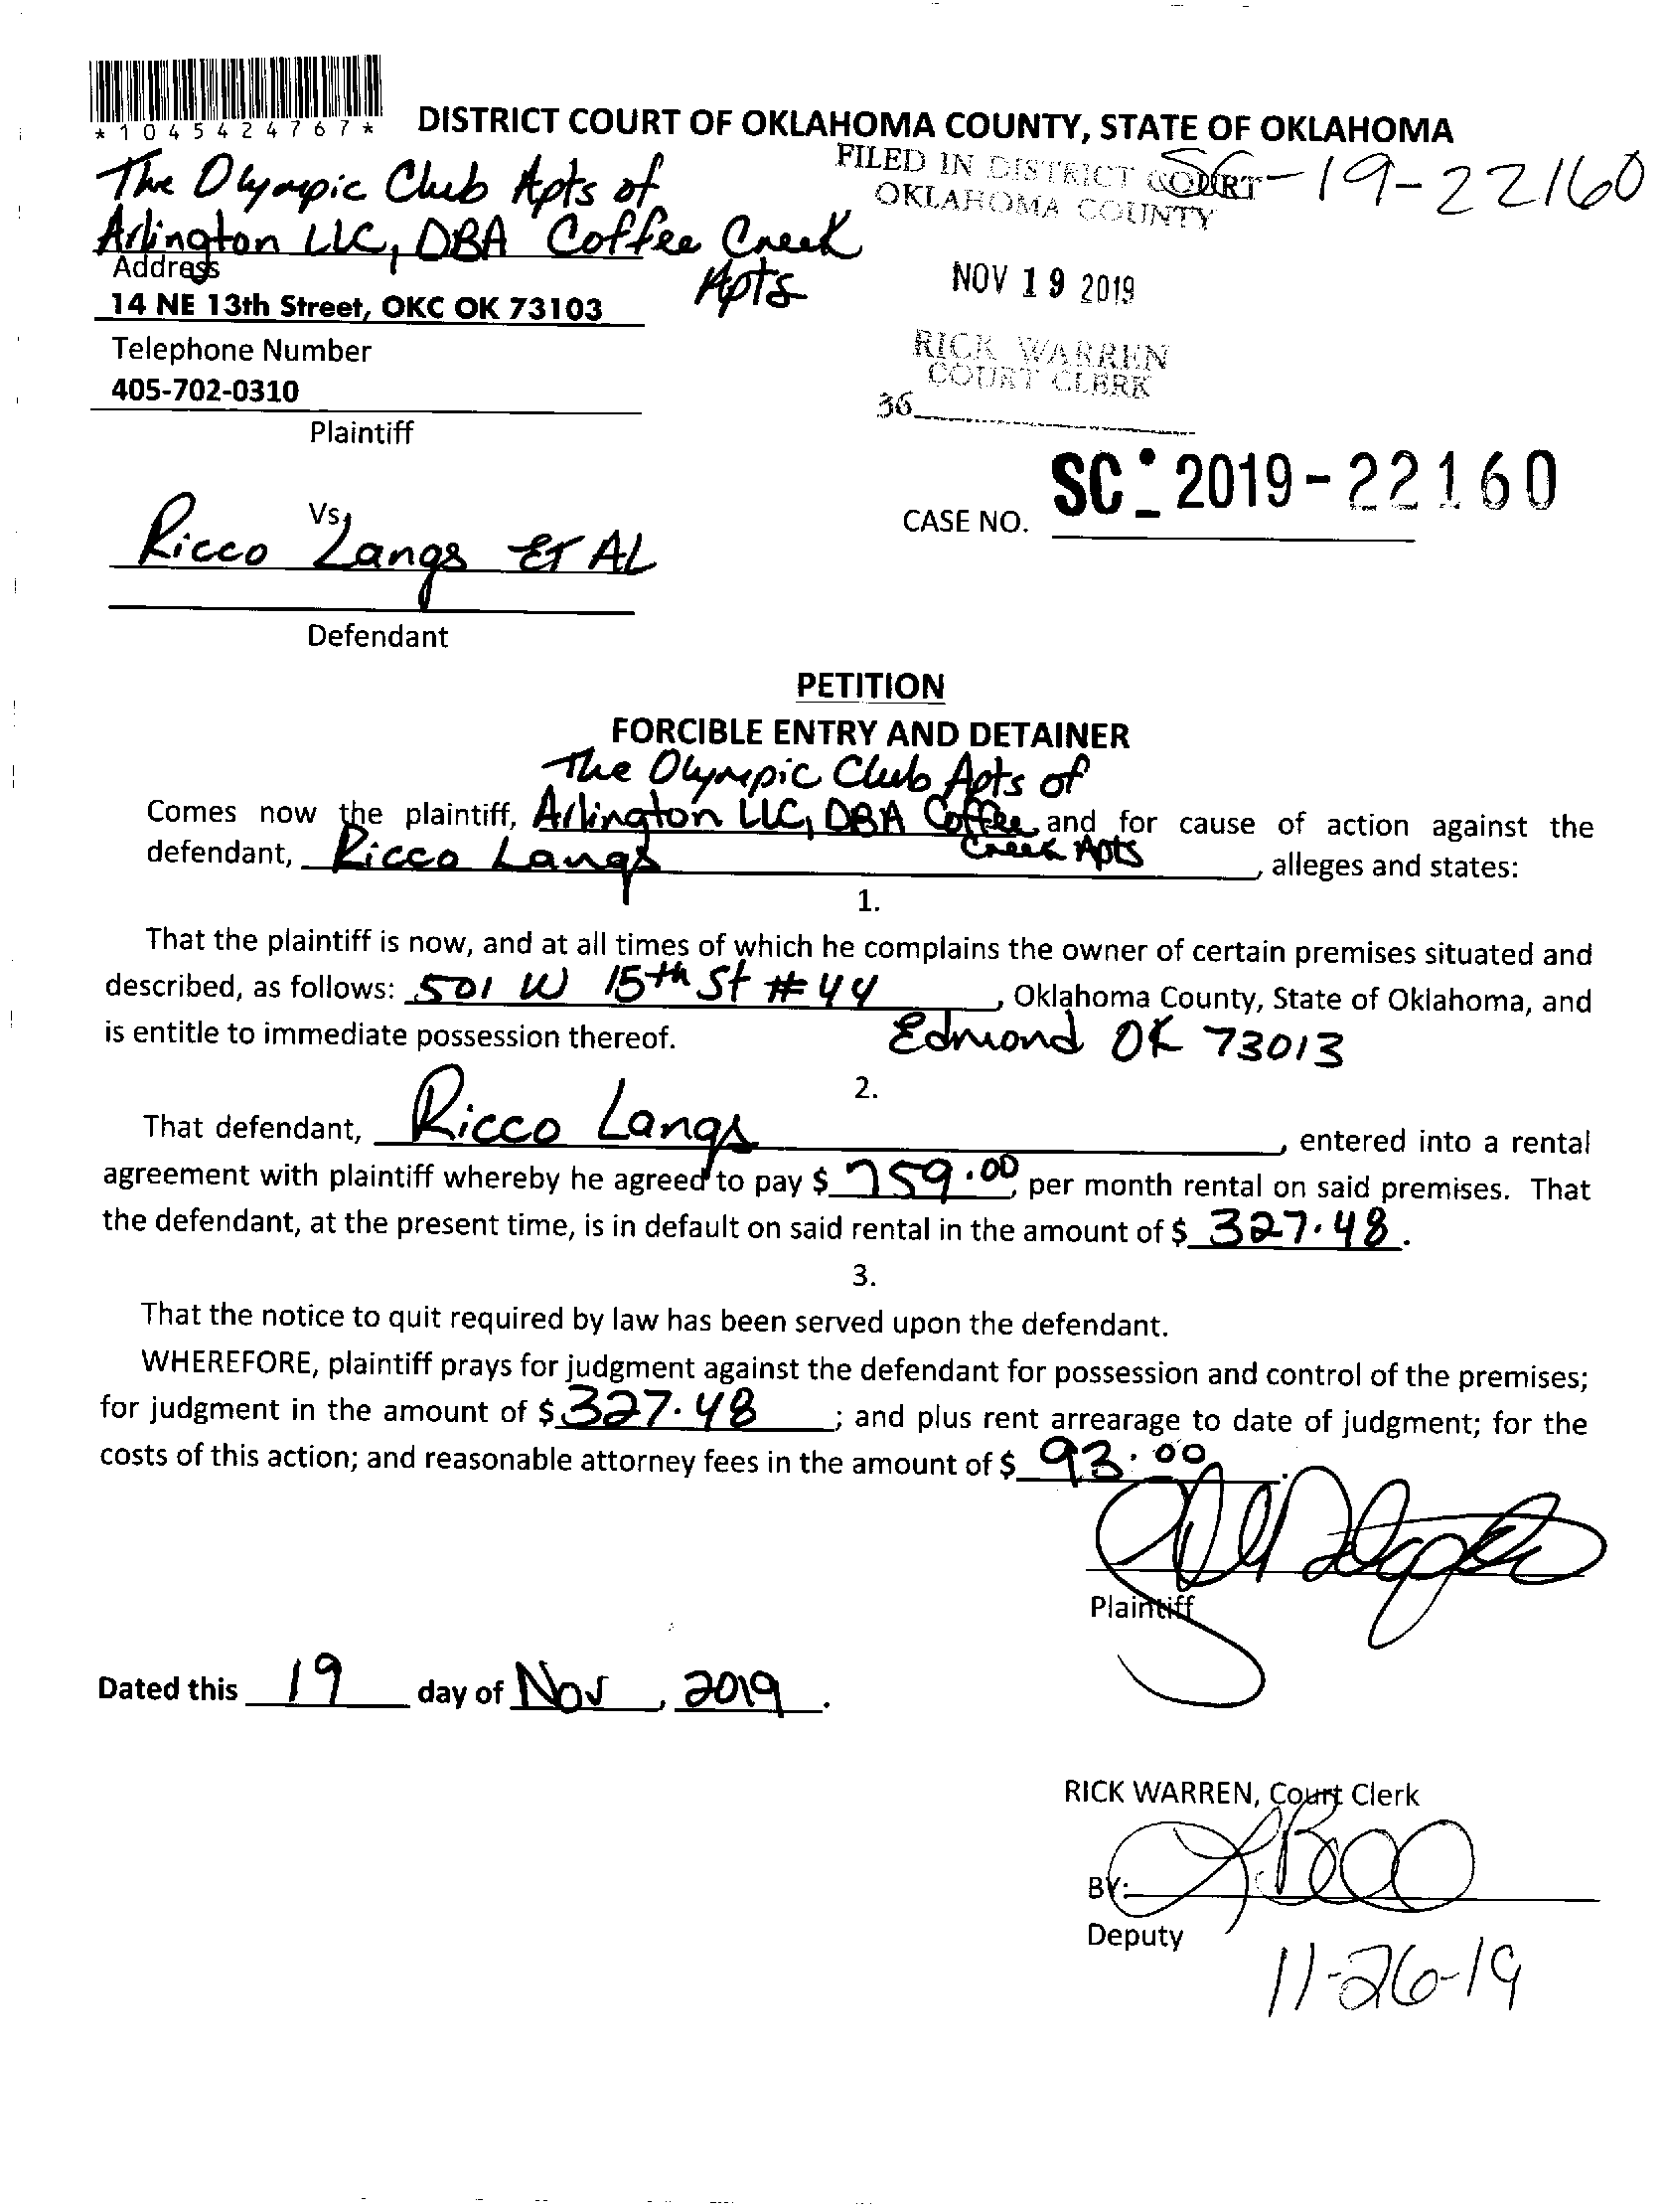 *1045424767*
DISTRICT COURT OF OKLAHOMA COUNTY, STATE OF OKLAHOMA
FILED IN DISTRICT COURT
OKLAHOMA COUNTY
SC-19-22160
The Olympic Club Apts of
Arlington LLC, DBA Coffee Creek
Apts
Address
14 NE 13th Street, OKC OK 73103
NOV 19 2019
Telephone Number
405-702-0310
RICK WARREN
COURT CLERK
36
Plaintiff
Vs.
CASE NO. SC-2019-22160
Ricco Langs ET AL
Defendant
PETITION
FORCIBLE ENTRY AND DETAINER
The Olympic Club Apts of
Comes now the plaintiff, Arlington LLC, DBA Coffee and for cause of action against the
Creek Apts
defendant, Ricco Langs, alleges and states:
1.
That the plaintiff is now, and at all times of which he complains the owner of certain premises situated and
described, as follows: 501 W 15th St #44, Oklahoma County, State of Oklahoma, and
is entitle to immediate possession thereof. Edmond OK 73013
2.
That defendant, Ricco Langs, entered into a rental
agreement with plaintiff whereby he agreed to pay $ 759.00, per month rental on said premises. That
the defendant, at the present time, is in default on said rental in the amount of $ 327.48.
3.
That the notice to quit required by law has been served upon the defendant.
WHEREFORE, plaintiff prays for judgment against the defendant for possession and control of the premises;
for judgment in the amount of $ 327.48; and plus rent arrearage to date of judgment; for the
costs of this action; and reasonable attorney fees in the amount of $ 93.00.
Plaintiff
Dated this 19 day of Nov, 2019.
RICK WARREN, Court Clerk
BY:
Deputy
11-26-19